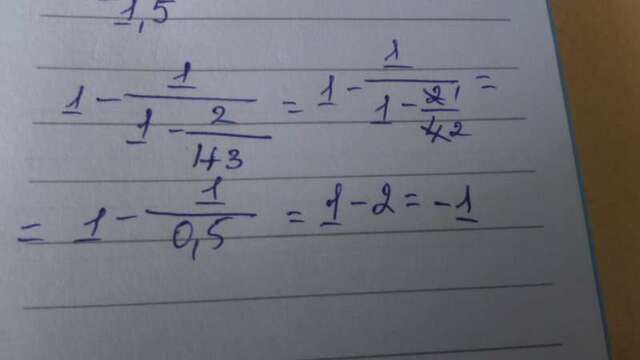 1,5
1 - 1/(1 - 2/(1+3)) = 1 - 1/(1 - 2̶1/4̶2) =
= 1 - 1/0,5 = 1 - 2 = -1